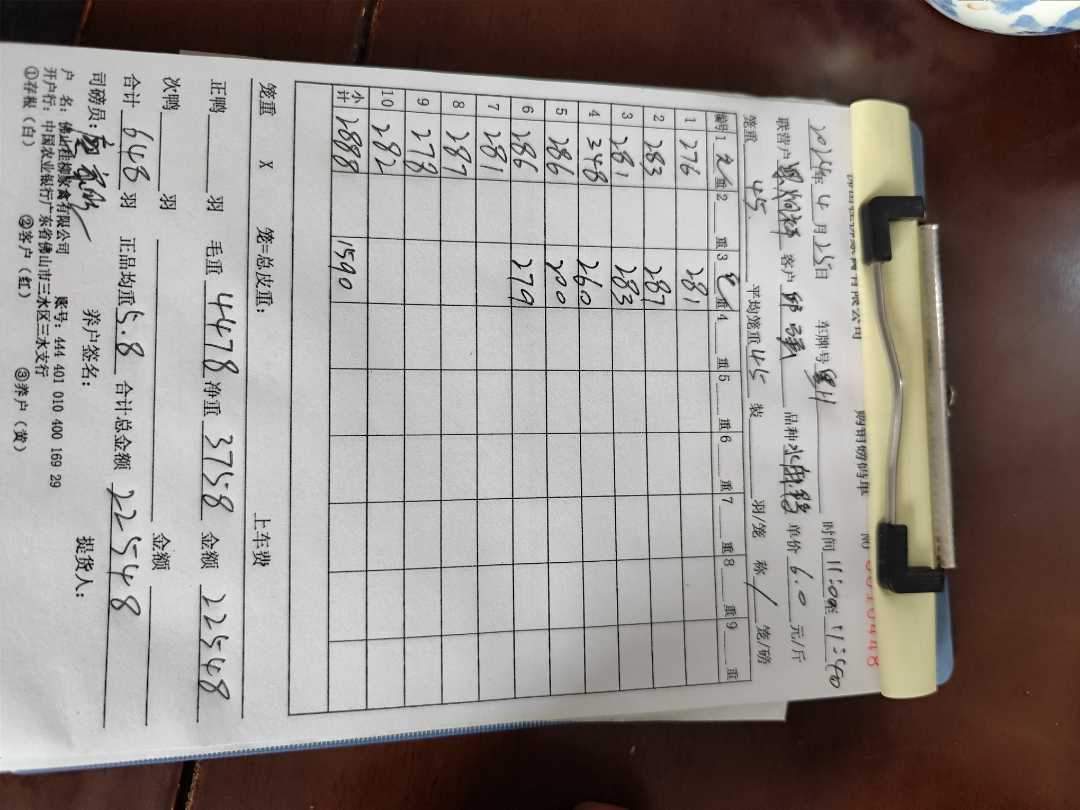 购销磅码单
2024年 4 月 25日 车牌号 时间 11:00至 11:40
联营户 客户 品种 单价 6.0 元/斤
笼重 45 平均笼重 45 装 羽/笼 称 / 笼/磅
编号 1 重 2 重 3 重 4 重 5 重 6 重 7 重 8 重 9 重
1 276 281
2 283 287
3 281 283
4 348 260
5 286 200
6 286 279
7 281
8 287
9 278
10 282
小计 2888 1590
笼重 X 笼=总皮重: 上车费
正鸭 羽 毛重 4478 净重 3758 金额 22548
次鸭 羽 金额
合计 648 羽 正品均重 5.8 合计总金额 22548
司磅员: 养户签名: 提货人:
户 名: 佛山桂柳家禽有限公司 账号: 444 401 010 400 169 29
开户行: 中国农业银行广东省佛山市三水区三水支行
①存根(白) ②客户(红) ③养户(黄)